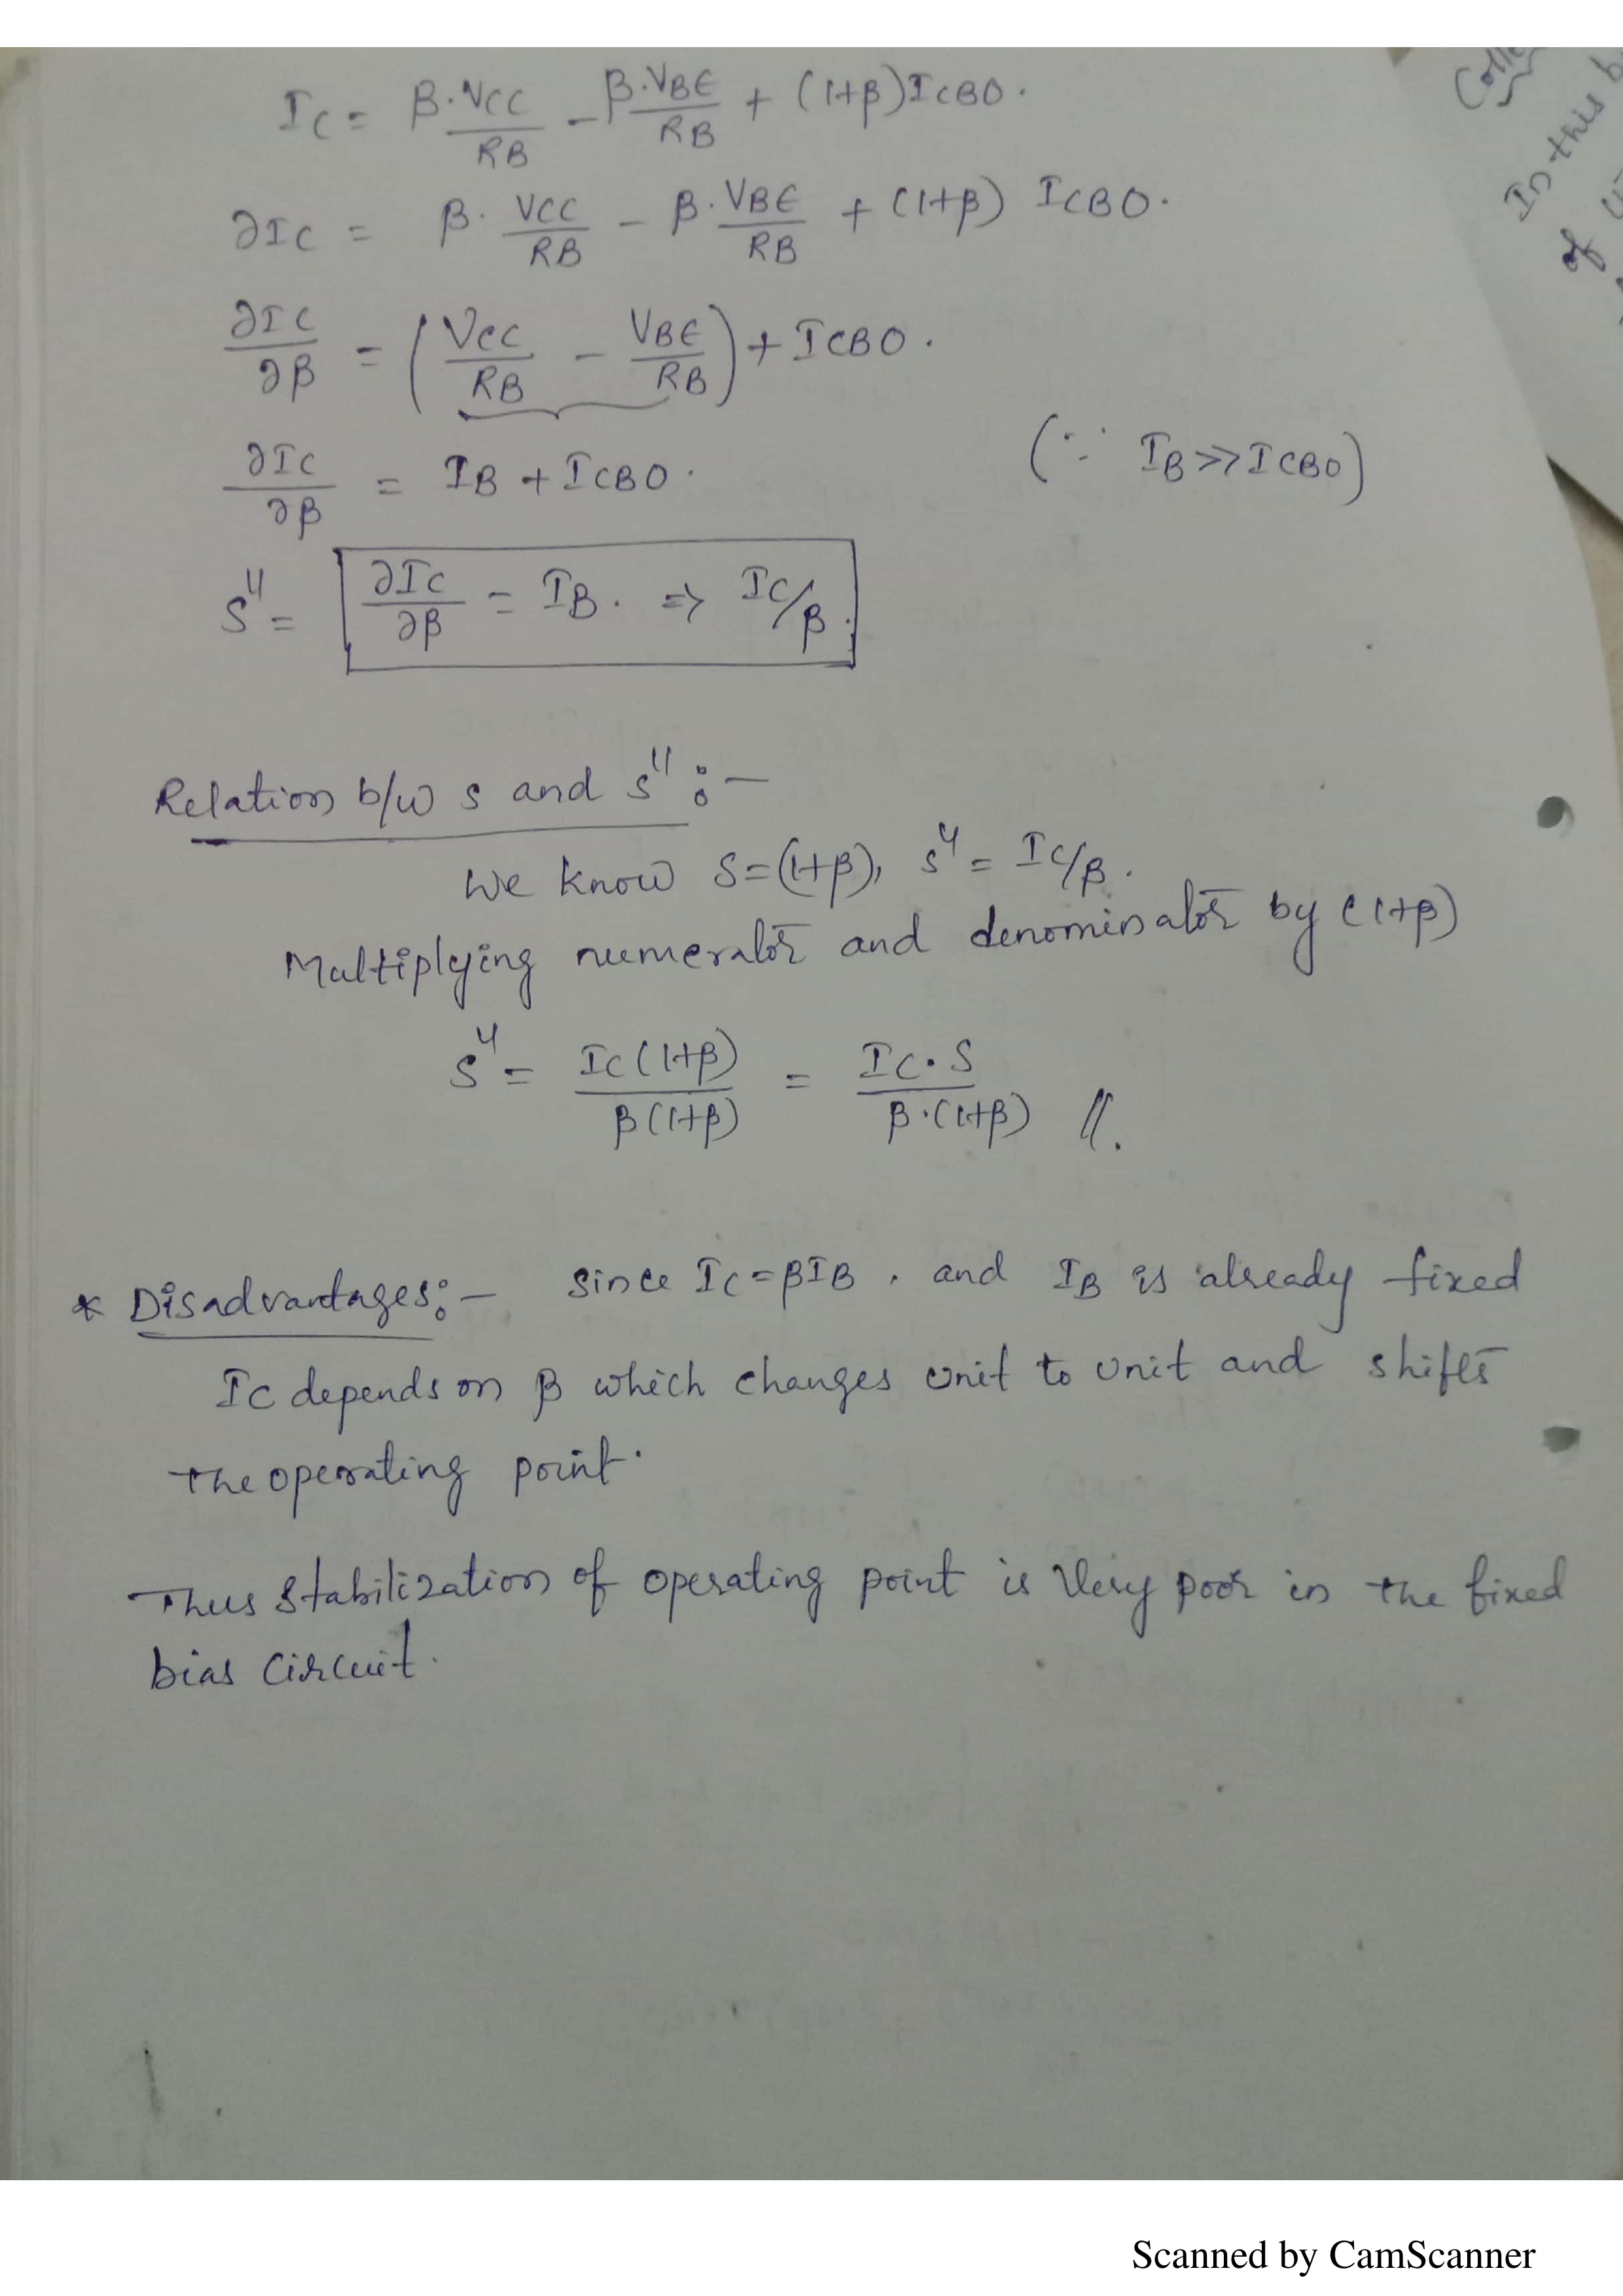 IC = β.VCC/RB - β.VBE/RB + (1+β)ICBO.
∂IC = β. VCC/RB - β.VBE/RB + (1+β) ICBO.
∂IC/∂β = (VCC/RB - VBE/RB) + ICBO.
∂IC/∂β = IB + ICBO. (∵ IB >> ICBO)
S" = ∂IC/∂β = IB. => IC/β.
Relation b/w s and s" :-
We know S=(1+β), s" = IC/β.
Multiplying numerator and denominator by (1+β)
s" = IC(1+β)/β(1+β) = IC.S/β.(1+β) //.
* Disadvantages:- since IC=βIB. and IB is already fixed
IC depends on β which changes unit to unit and shifts
the operating point.
Thus stabilization of operating point is very poor in the fixed
bias circuit.
In this
of
Scanned by CamScanner